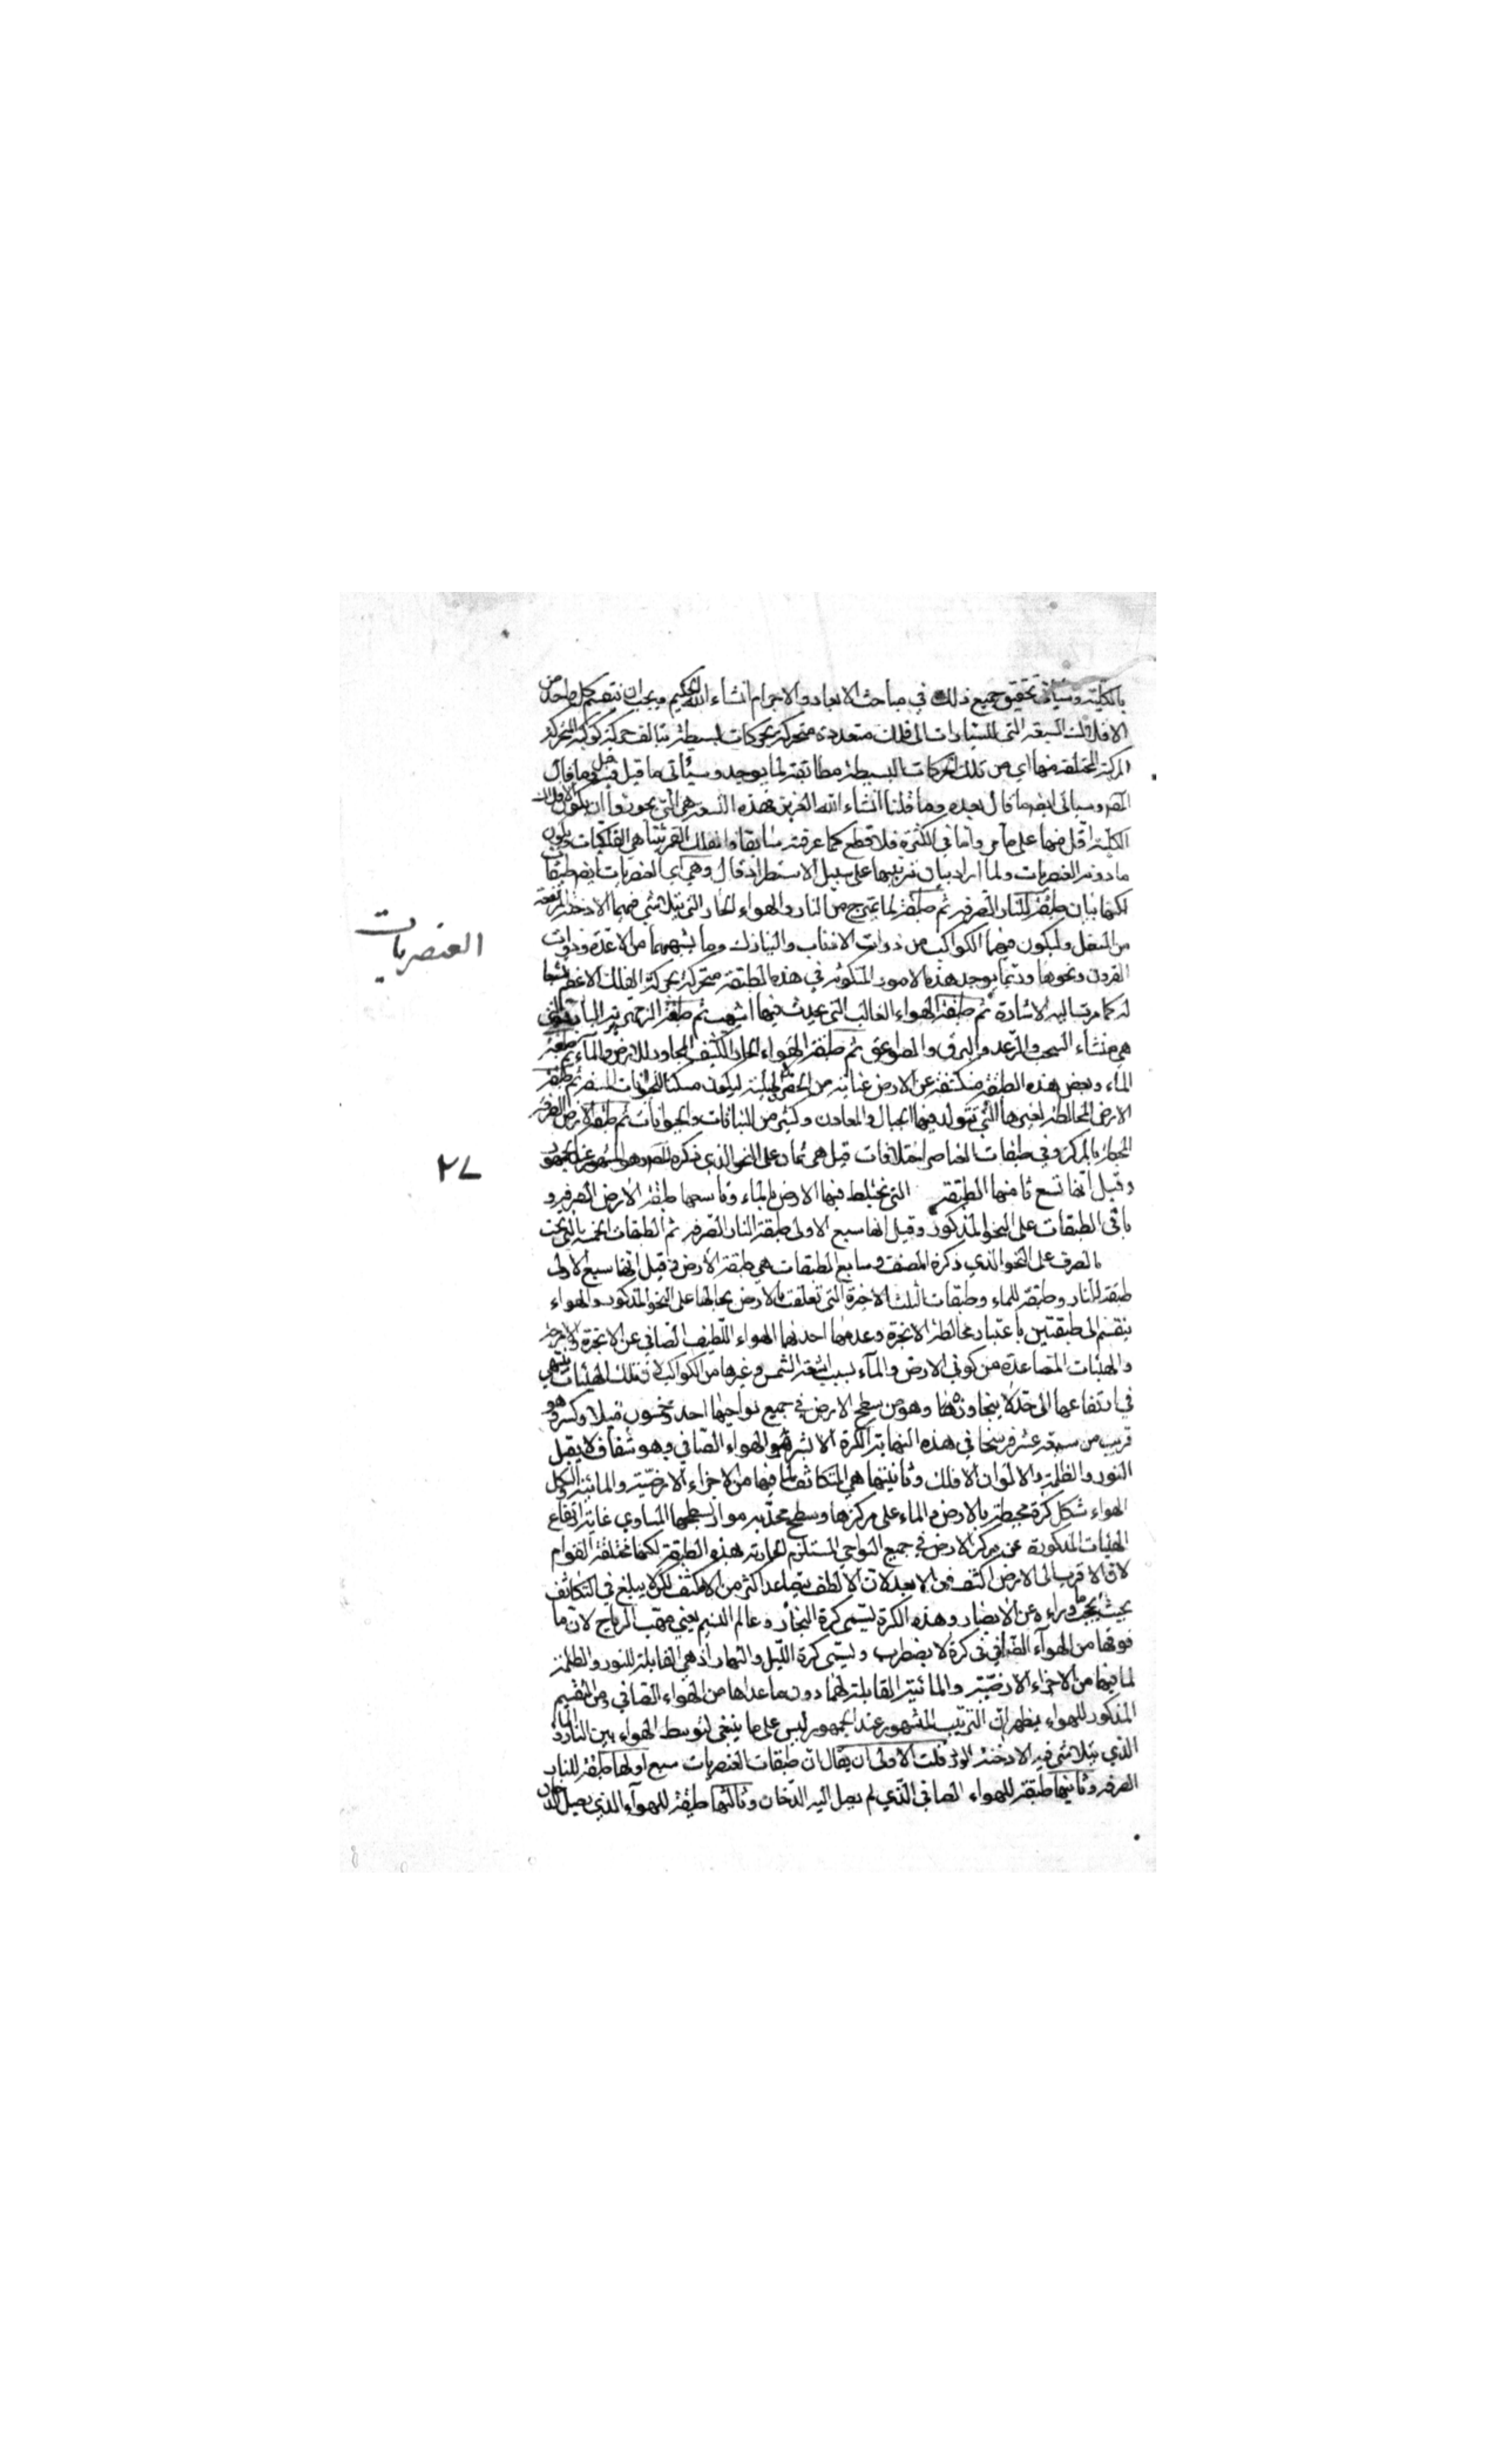 بالكلية وسيأتي تحقيق جميع ذلك في مباحث الابعاد والاجرام انشاء الله الحكيم ويجب ان ينقسم كل واحد من
الافلاك السبعة التي للسيارات الى افلاك متعددة متحركة بحركات بسيطة يتالف حركة كوكبه المتحركة
المركبة المختلفة منها اي من تلك الحركات البسيطة مطابقة لما يوجد وسيأتي ما قيل فيه وما قال
المص وسياتي ايضا ما قال بعده وما قلنا انشاء الله العزيز فهذه التسعة هي التي يجوزوا ان يكون الافلاك
الكلية اقل منها على ما مر واما في الكثرة فلا قطع كما عرفته سابقا وانفلك القمر تناهى الفلكيات ويكون
ما دونه العنصريات ولما اراد بيان ترتيبها على سبيل الاستطراد قال وهي اي العنصريات ايضا طبقات
لكنها ثمان طبقة للنار الصرفة ثم طبقة لما يمتزج من النار والهواء الحار التي يتلاشى فيها الادخنة المرتفعة
من السفل وليكون فيها الكواكب من ذوات الاذناب والنيازك وما يشبههما من الاعمدة وذوات
القرون ونحوها وربما يوجد هذه الامور المتكونة في هذه الطبقة متحركة بحركة الفلك الاعظم
له كما مرت اليه الاشارة ثم طبقة الهواء الغالب التي يحدث فيها الشهب ثم طبقة الزمهريرية الباردة التي
هي منشاء السحب والرعد والبرق والصواعق ثم طبقة الهواء الحار الكثيف المجاور للارض والماء ثم طبقة
الماء وبعض هذه الطبقة منكشفة عن الارض عناية من الحضرة الالهية ليكون مسكنا للحيوانات المتنفسة ثم طبقة
الارض المخالطة لغيرها التي تتولد فيها الجبال والمعادن وكثير من النباتات والحيوانات ثم طبقة الارض الصرفة
المجاورة بالمركز وفي طبقات العناصر اختلافات قيل هي ثمان على النحو الذي ذكره المص وهو المشهور عند الجمهور
وقيل انها تسع ثامنها الطبقة التي تختلط فيها الارض بالماء وتاسعها طبقة الارض الصرفة و
باقي الطبقات على النحو المذكور وقيل انها سبع الاولى طبقة النار الصرفة ثم الطبقات الخمسة التي تحت
الصرف على النحو الذي ذكره المصنف وسابع الطبقات هي طبقة الارض وقيل انها سبع الاولى
طبقة للنار وطبقة للماء وطبقات الثلث الاخيرة التي تعلقت بالارض بحالها على النحو المذكور والهواء
ينقسم الى طبقتين باعتبار مخالطة الابخرة وعدمها احدهما الهواء اللطيف الصافي عن الابخرة والادخنة
والهبئات المتصاعدة من كوني الارض والماء بسبب اشعة الشمس وغيرها من الكواكب لان تلك الهيئات ينتهي
في ارتفاعها الى حد لا يتجاوزها وهو من سطح الارض في جميع نواحيها احد وخمسون ميلا وكسر وهو
قريب من سبعة عشر فرسخا في هذه النهاية الكرة الاثيرة هو الهواء الصافي وهو شفاف لا يقبل
النور والظلمة والالوان كالافلاك وثانيتها هي المتكاثف لما فيها من الاجزاء الارضية والمائية
الهواء شكل كرة محيطة بالارض والماء على مركزها وسطح محدبه مواز لسطحها المساوي غاية ارتفاع
الهيئات المذكورة عن مركز الارض في جميع النواحي المستلزم لكروية هذه الطبقة لكنها مختلفة القوام
لان الاقرب الى الارض اكثف من الابعد لان الالطف يتصاعد اكثر من الاكثف لكن لا يبلغ في التكاثف
بحيث يحجب ما وراءه عن الابصار وهذه الكرة تسمى كرة البخار وعالم النسيم يعني مهب الرياح لان ما
فوقها من الهواء الصافي في كرة لا يضطرب وتسمى كرة الليل والنهار اذ هي القابلة للنور والظلمة
لما فيها من الاجزاء الارضية والمائية القابلة لهما دون ما عداها من الهواء الصافي ومن التقسيم
المذكور للهواء يظهر ان الترتيب المشهور عند الجمهور ليس على ما ينبغي لتوسط الهواء بين النار و
الذي يتلاشى فيه الادخنة قلت الاولى ان يقال ان طبقات العنصريات سبع اولها طبقة للنار
الصرفة وثانيها طبقة للهواء الصافي الذي لم يصل اليه الدخان وثالثها طبقة للهواء الذي يصل الدخان
العنصريات
٢٧